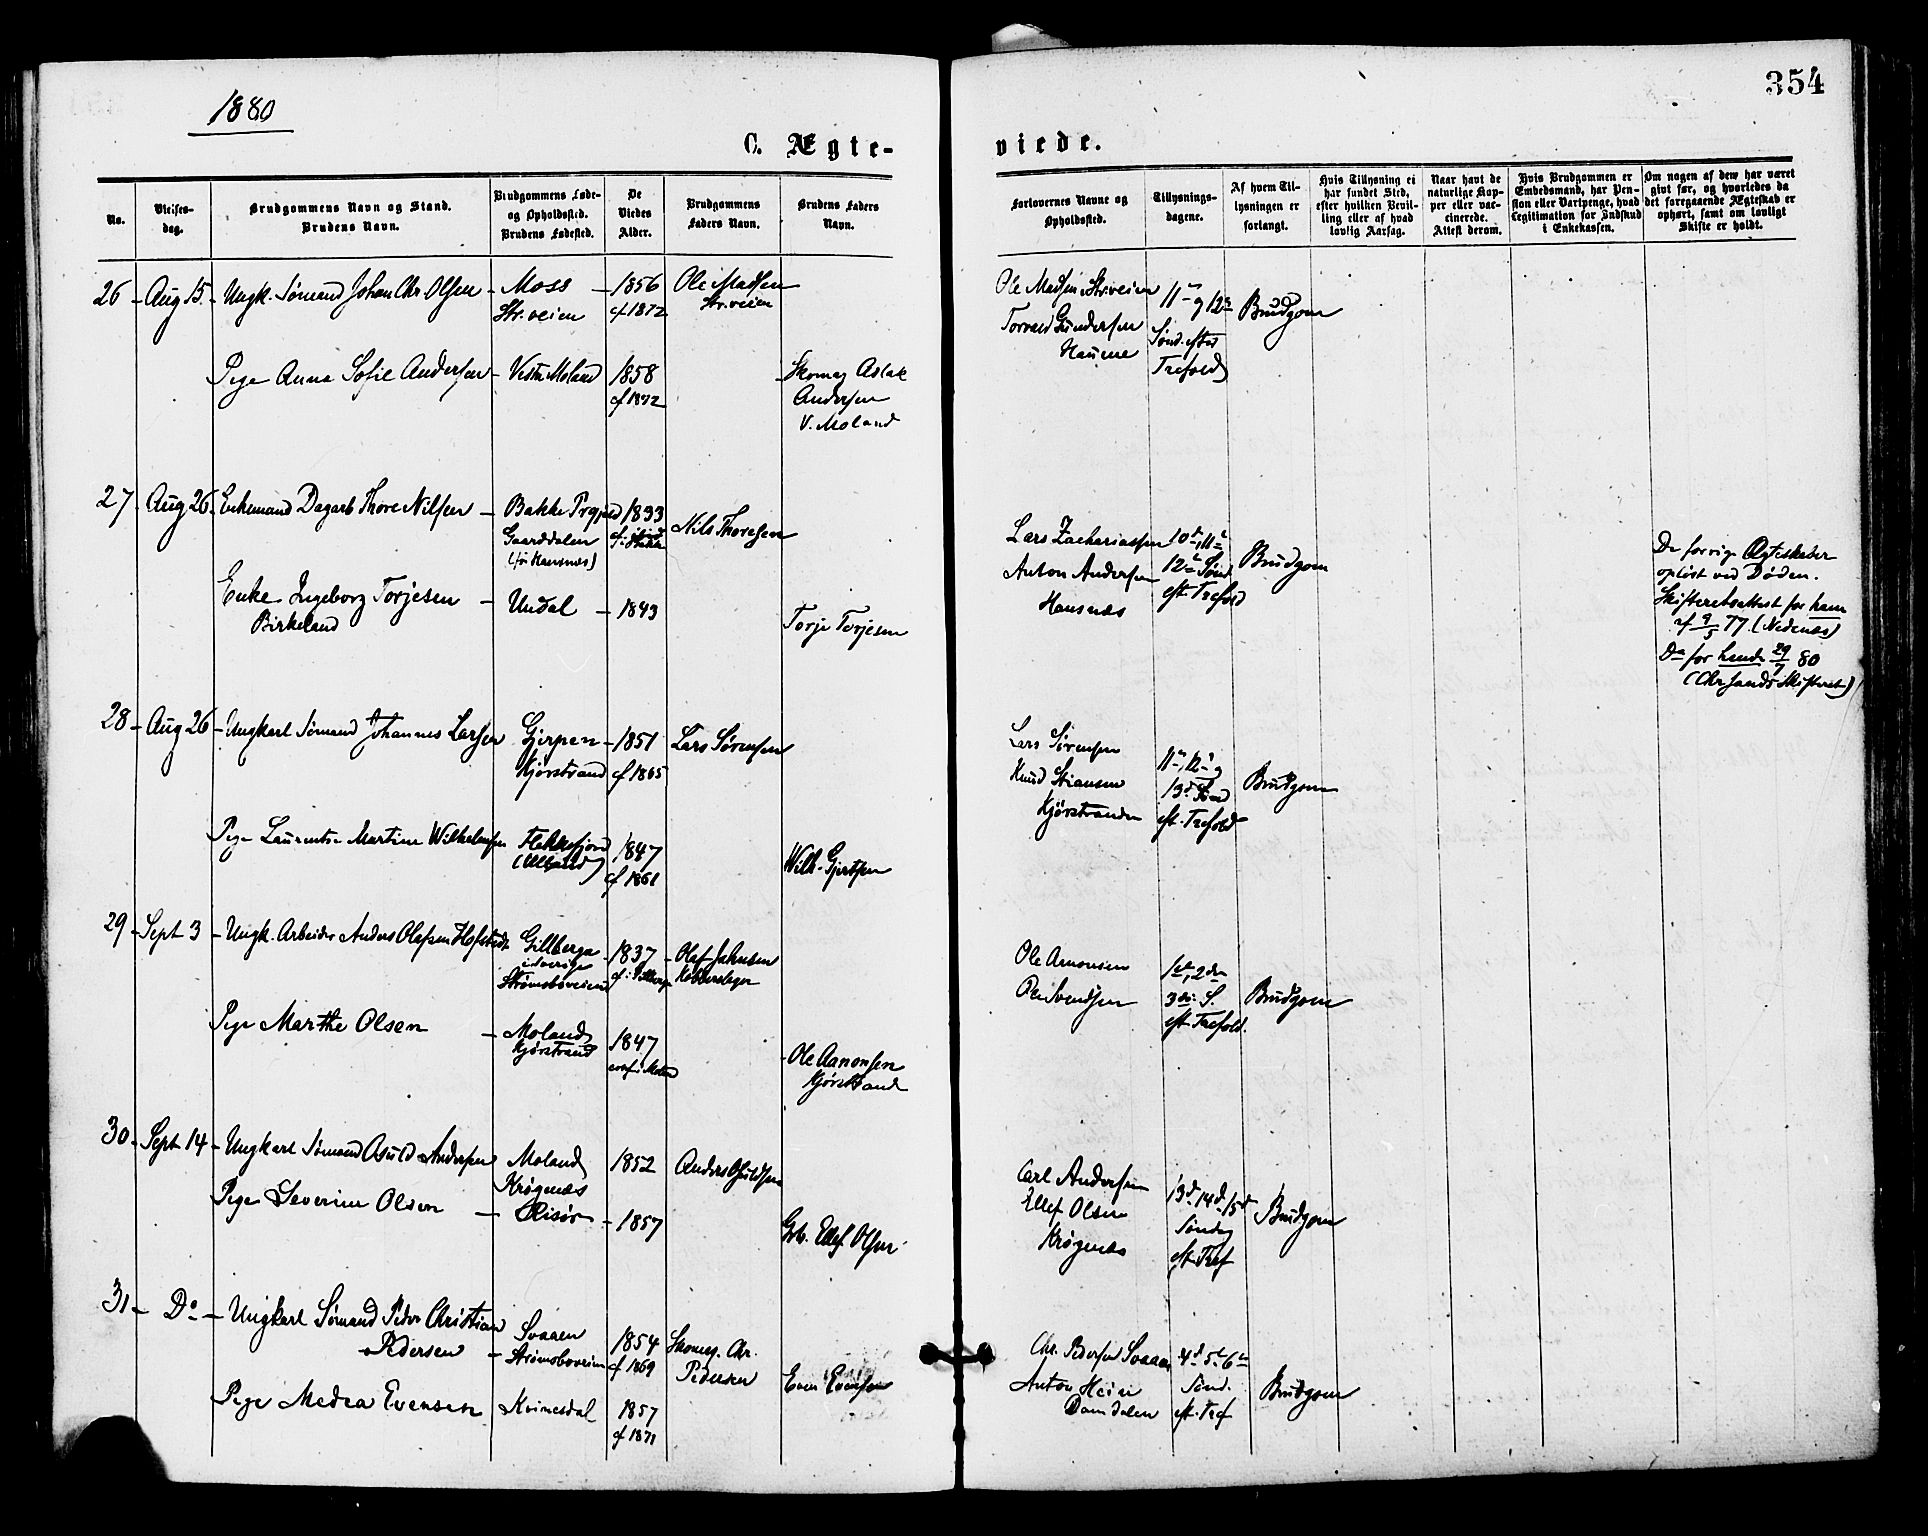 1880
354
C. Ægte-
viede.
No.
Vielses-
dag.
Brudgommens Navn og Stand.
Brudens Navn.
Brudgommens Føde-
og Opholdssted.
Brudens Fødested.
De
Viedes
Alder.
Brudgommens
Faders Navn.
Brudens Faders
Navn.
Forlovernes Navne og
Opholdssted.
Tillysnings-
dagene.
Af hvem Til-
lysningen er
forlangt.
Hvis Tillysning ei
har fundet Sted,
efter hvilken Bevil-
ling eller af hvad
lovlig Aarsag.
Naar havt de
naturlige Kop-
per eller vac-
cinerede.
Attest derom.
Hvis Brudgommen er
Embedsmand, har Pen-
sion eller Vartpenge, hvad
Legitimation for Indskud
i Enkekassen.
Om nogen af dem har været
gift før, og hvorledes da
det foregaaende Ægteskab er
ophørt, samt om lovligt
Skifte er holdt.
26 - Aug 15 - Ungk. Sømand Johan Chr. Olsen - Moss - 1856 Ole Madsen
Str.veien cf 1872 Str.veien
Pige Anna Sofie Andersen - Vestre Moland 1858 Skomag Aslak
cf 1872 Andersen
V. Moland
Ole Madsen Str.veien 11te og 12te Brudgom
Torvald Gundersen Sønd. efter
Trefold
27 - Aug 26 - Enkemand Dagarb Thore Nilsen - Bakke Prgjeld 1833 Nils Thoresen
Gaarddalen
Enke Ingeborg Torjesen - Undal - 1843
Birkeland Torje Torjesen
Lars Zachariassen 10de, 11te Brudgom
Anton Andersen 12te Sønd
Hansnæs eft. Trefold
De forrige Ægteskaber
opløst ved Døden.
Skifteretsattest for ham
af 9/5 77 (Nedenæs)
Do for hende 29/7 80
(Chrsands Skifteret)
28 - Aug 26 - Ungkarl Sømand Johannes Larsen Gjerpen - 1851 Lars Sørensen
Kjørstrand cf 1865
Pige Laurentse Martine Wilhelmsen Flekkefjord 1847 Wilh. Gjertsen
cf 1861
Lars Sørensen 11te, 12te og Brudgom
Knud Stiansen 13de Sønd
Kjørstranden eft. Trefold
29 - Sept 3 - Ungk. Arbeider Anders Olafsen Hofstedt Gillberga - 1837 - Olaf Jahnsen
i Sverige
Strømsboveien Kobberslager
Pige Marthe Olsen - Moland 1847
Kjørstrand
Ole Aanonsen
Kjørstrand
Ole Aanonsen 1ste, 2den Brudgom
Ole Svendsen 3die S.
eft. Trefold.
30 - Sept 14 - Ungkarl Sømand Osuld Andersen Moland 1852 Anders Osuldsen
Krøgenæs
Pige Severine Olsen - Risør - 1857
Grb. Ellef Olsen
Carl Andersen 13de 14de 15de Brudgom
Ellef Olsen Søndag
Krøgenæs eft. Tref
31 - Do - Ungkarl Sømand Peder Christian
Pedersen - Svaaen 1854 Skomag. Chr.
Strømsboveien cf 1869 Pedersen
Pige Medea Evensen - Kvinesdal 1857 Even Evensen
cf 1871
Chr. Pedersen Svaaen 4de 5te 6te Brudgom
Anton Heier Sønd.
Damdalen eft. Tref